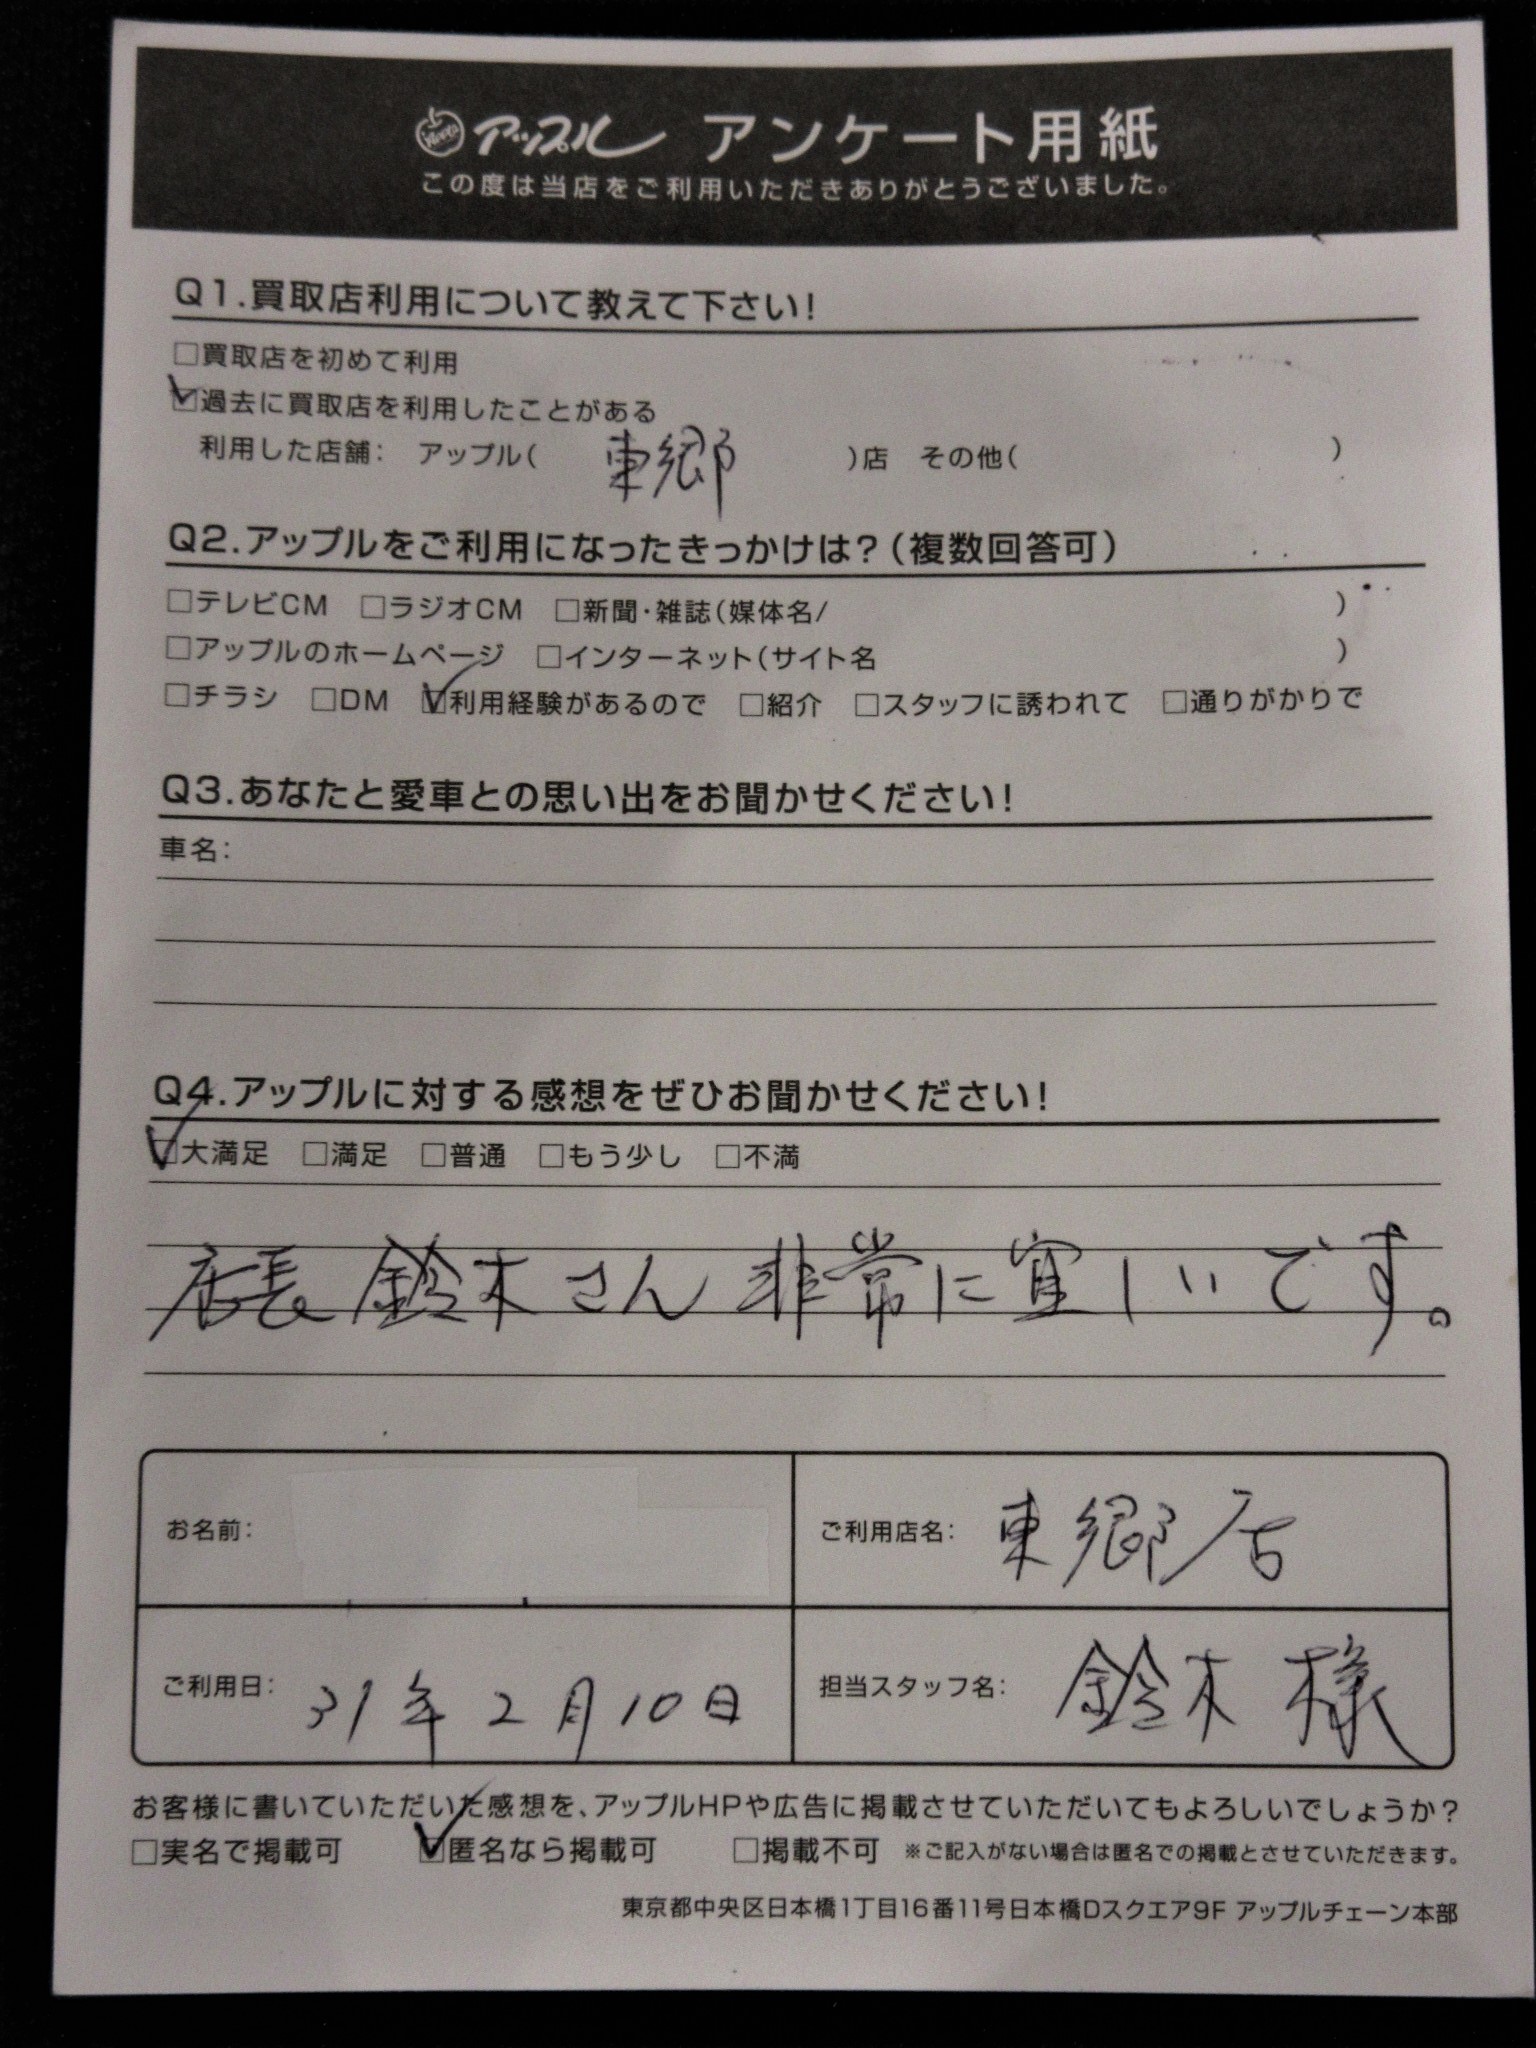 アップル アンケート用紙
この度は当店をご利用いただきありがとうございました。
Q1.買取店利用について教えて下さい!
□買取店を初めて利用
☑過去に買取店を利用したことがある
利用した店舗: アップル( 東郷 )店 その他( )
Q2.アップルをご利用になったきっかけは?(複数回答可)
□テレビCM □ラジオCM □新聞・雑誌(媒体名/ )
□アップルのホームページ □インターネット(サイト名 )
□チラシ □DM ☑利用経験があるので □紹介 □スタッフに誘われて □通りがかりで
Q3.あなたと愛車との思い出をお聞かせください!
車名:
Q4.アップルに対する感想をぜひお聞かせください!
☑大満足 □満足 □普通 □もう少し □不満
店長 鈴木さん 非常に宜しいです。
お名前:
ご利用店名: 東郷店
ご利用日: 31年2月10日
担当スタッフ名: 鈴木 様
お客様に書いていただいた感想を、アップルHPや広告に掲載させていただいてもよろしいでしょうか?
□実名で掲載可 ☑匿名なら掲載可 □掲載不可 ※ご記入がない場合は匿名での掲載とさせていただきます。
東京都中央区日本橋1丁目16番11号日本橋Dスクエア9F アップルチェーン本部